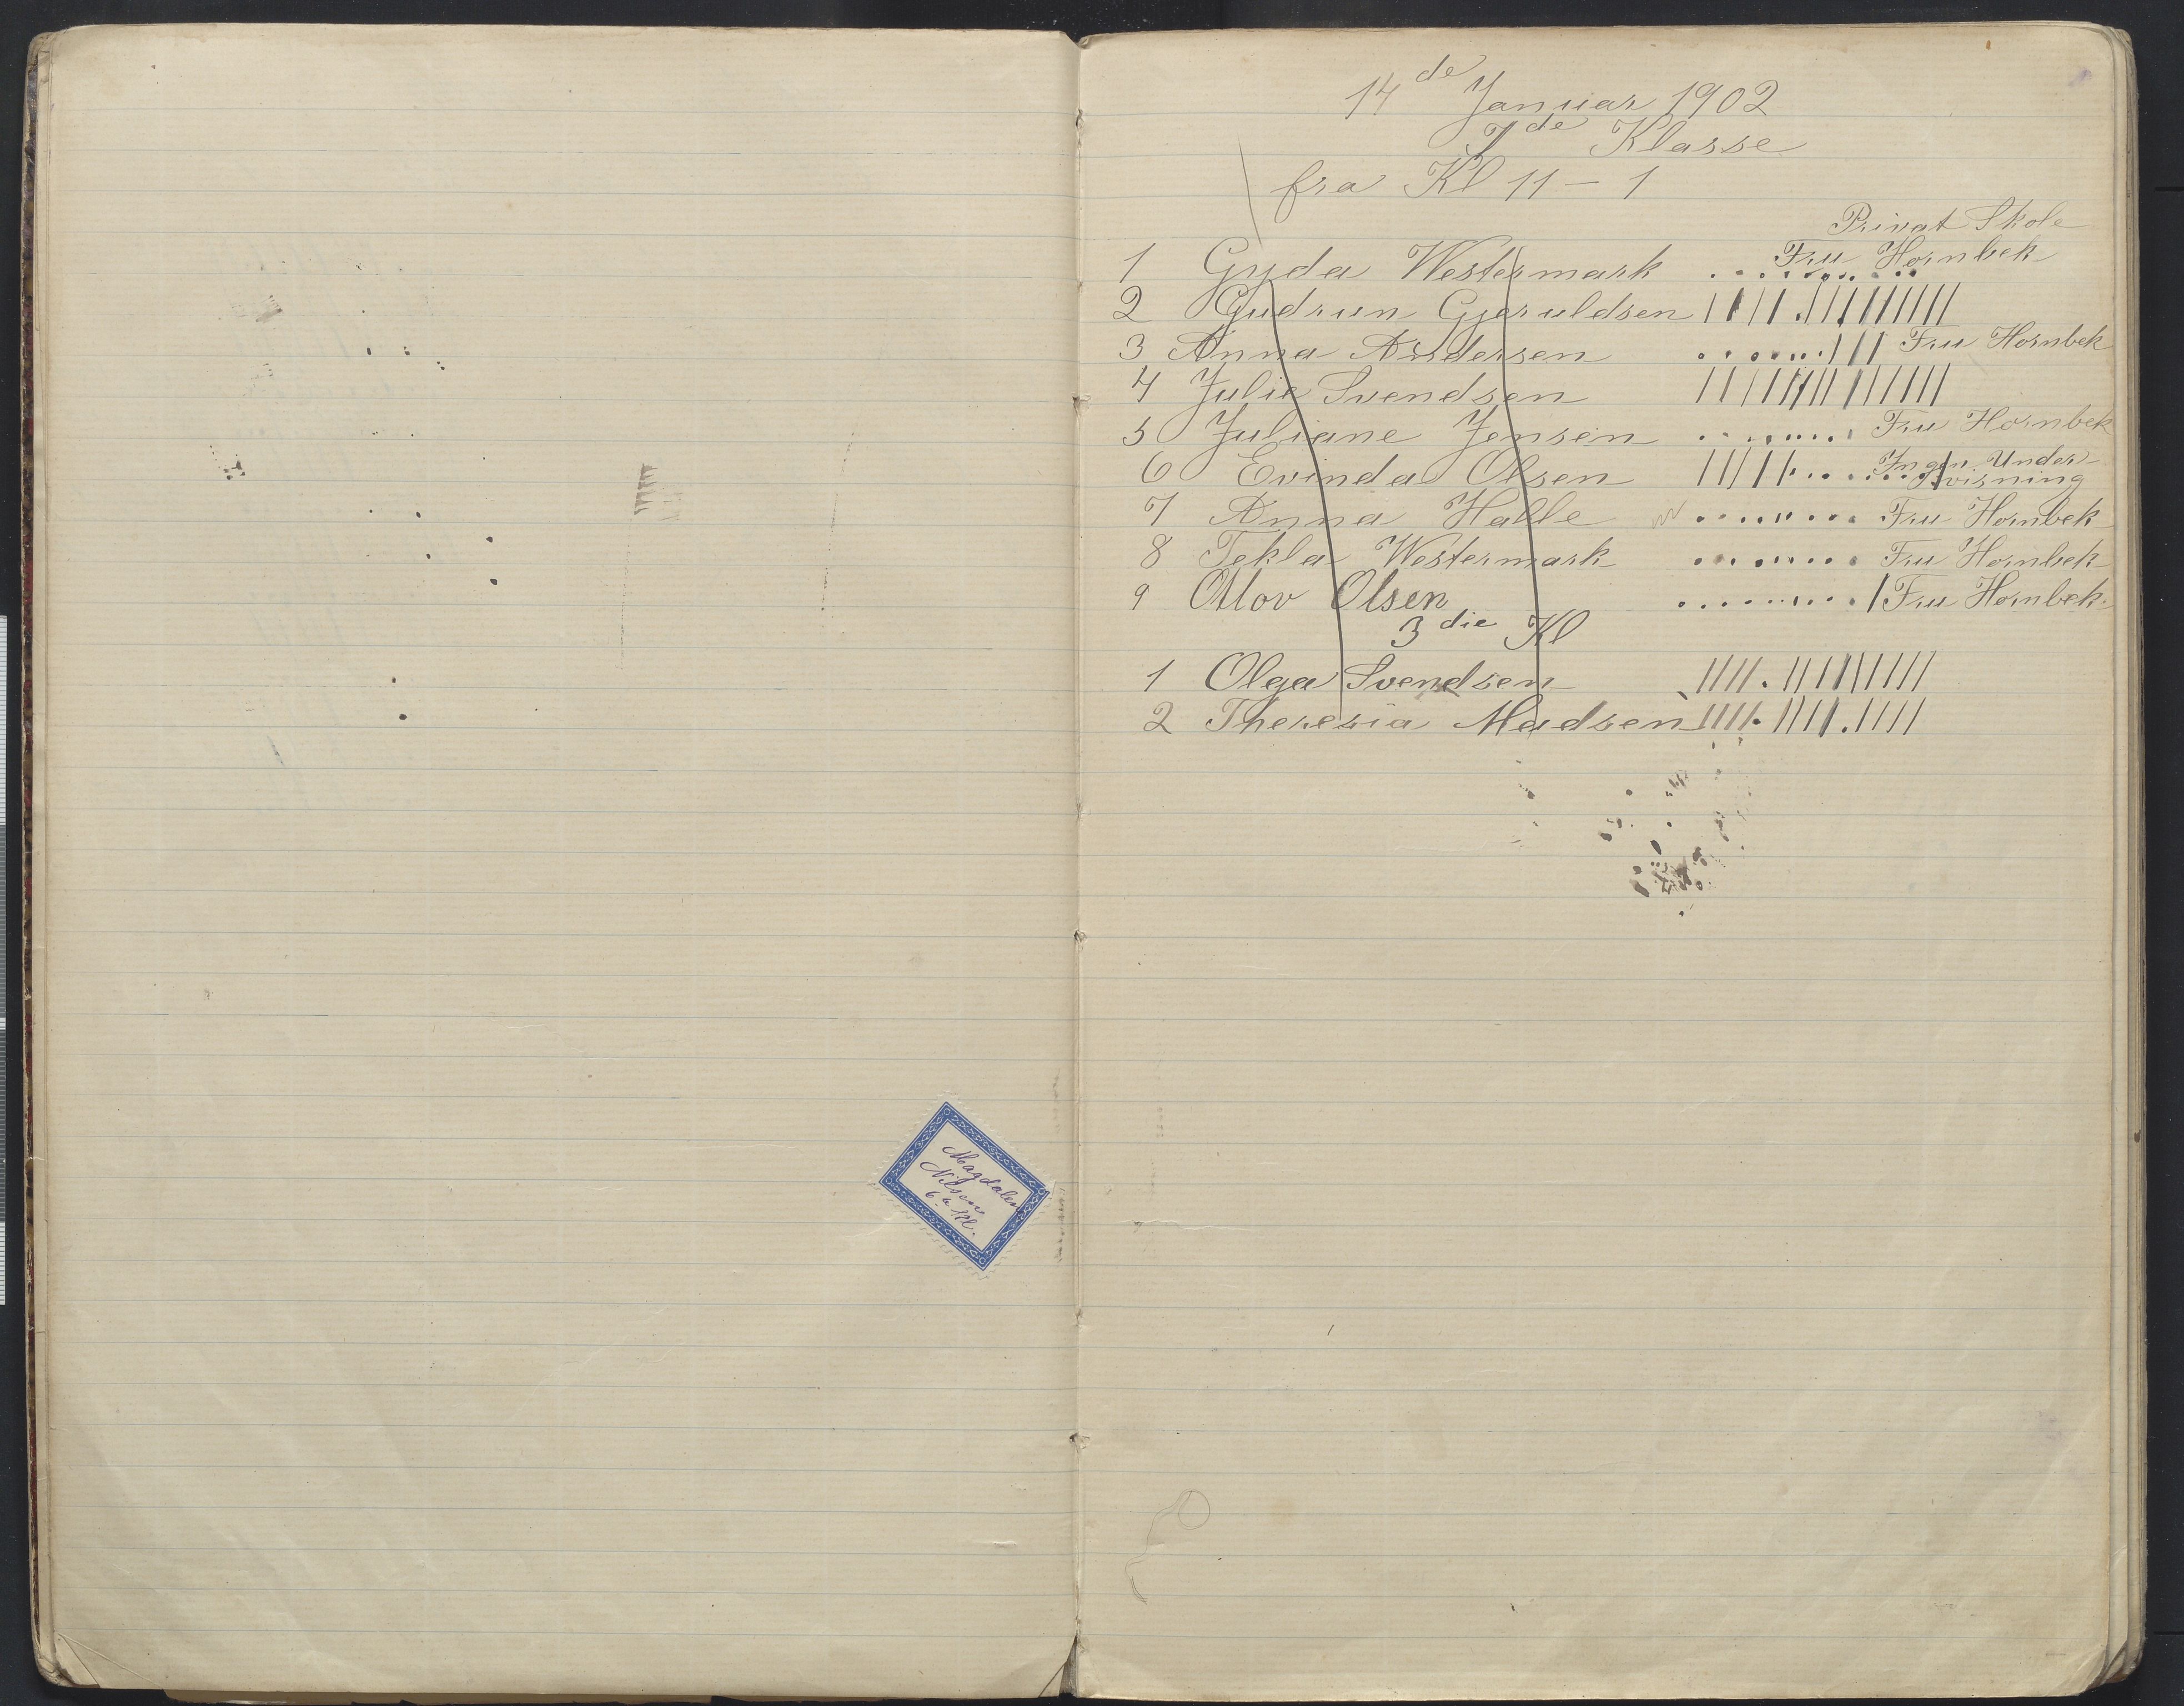 Magdalen
Nilsen
6te Kl.
14de Januar 1902
7de Klasse
fra Kl 11 - 1
Privat Skole
1 Gyda Westermark ......... Fru Hornbek
2 Gudrun Gjeruldsen ||||.|||||||||
3 Anna Andersen .......||| Fru Hornbek
4 Julie Svendsen ||||||||||||||
5 Juliane Jensen ........ Fru Hornbek
6 Evinda Olsen |||||....... Ingen Under-
visning
7 Anna Halle ........ Fru Hornbek
8 Tekla Westermark ........ Fru Hornbek
9 Olsen .........| Fru Hornbek.
3die Kl
1 Olga Svendsen ||||.|||||||||
2 Theresia Madsen ||||.||||.||||